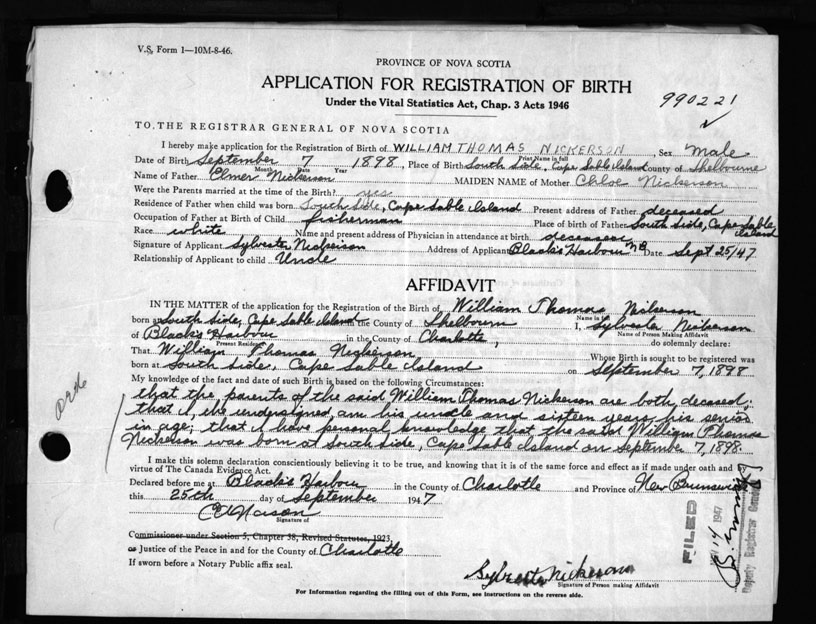 V.S. Form 1—10M-8-46.
PROVINCE OF NOVA SCOTIA
APPLICATION FOR REGISTRATION OF BIRTH
Under the Vital Statistics Act, Chap. 3 Acts 1946
990221
TO THE REGISTRAR GENERAL OF NOVA SCOTIA
I hereby make application for the Registration of Birth of WILLIAM THOMAS NICKERSON, Sex Male
Print Name in full
Date of Birth September 7 1898, Place of Birth South Side, Cape Sable Island County of Shelbourne
Month Date Year
Name of Father Elmer Nickerson MAIDEN NAME of Mother Chloe Nickerson
Were the Parents married at the time of Birth? yes
Residence of Father when child was born South Side, Cape Sable Island Present address of Father deceased
Occupation of Father at Birth of Child fisherman Place of birth of Father South Side, Cape Sable Island
Race white Name and present address of Physician in attendance at birth deceased
Signature of Applicant Sylvester Nickerson Address of Applicant Black's Harbour NB Date Sept 25/47
Relationship of Applicant to child Uncle
AFFIDAVIT
IN THE MATTER of the application for the Registration of the Birth of William Thomas Nickerson
Name in full
born at South Side, Cape Sable Island in the County of Shelbourn I, Sylvester Nickerson
Name of Person Making Affidavit
of Black's Harbour in the County of Charlotte, do solemnly declare:
Present Residence
That William Thomas Nickerson Whose Birth is sought to be registered was
born at South Side, Cape Sable Island on September 7, 1898
My knowledge of the fact and date of such Birth is based on the following Circumstances:
that the parents of the said William Thomas Nickerson are both deceased;
that I, the undersigned, am his uncle and sixteen years his senior
in age; that I have personal knowledge that the said William Thomas
Nickerson was born at South Side, Cape Sable Island on September 7, 1898.
I make this solemn declaration conscientiously believing it to be true, and knowing that it is of the same force and effect as if made under oath and
virtue of The Canada Evidence Act.
Declared before me at Black's Harbour in the County of Charlotte and Province of New Brunswick
this 25th day of September 1947
Signature of
Commissioner under Section 5, Chapter 38, Revised Statutes, 1923,
or Justice of the Peace in and for the County of Charlotte
If sworn before a Notary Public affix seal.
Sylvester Nickerson
Signature of Person making Affidavit
For Information regarding the filling out of this Form, see instructions on the reverse side.
FILED
1947
Deputy Registrar General